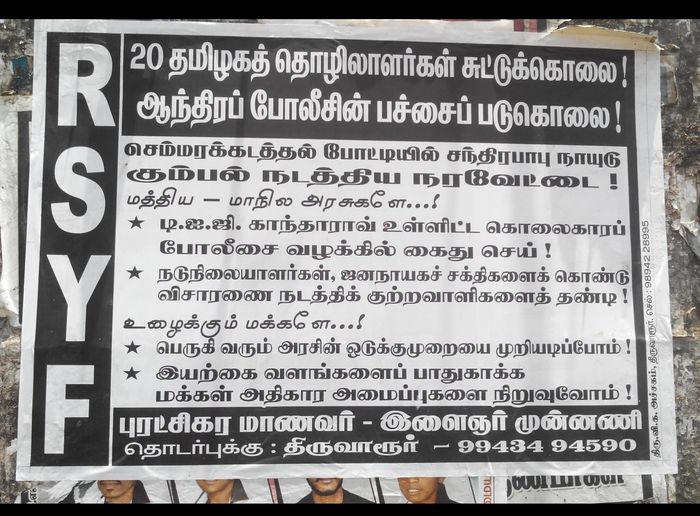 RSYF
20 தமிழகத் தொழிலாளர்கள் சுட்டுக்கொலை !
ஆந்திரப் போலீசின் பச்சைப் படுகொலை !
செம்மரக்கடத்தல் போட்டியில் சந்திரபாபு நாயுடு
கும்பல் நடத்திய நரவேட்டை !
மத்திய – மாநில அரசுகளே...!
★ டி.ஐ.ஜி. காந்தாராவ் உள்ளிட்ட கொலைகாரப்
போலீசை வழக்கில் கைது செய் !
★ நடுநிலையாளர்கள், ஜனநாயகச் சக்திகளைக் கொண்டு
விசாரணை நடத்திக் குற்றவாளிகளைத் தண்டி !
உழைக்கும் மக்களே...!
★ பெருகி வரும் அரசின் ஒடுக்குமுறையை முறியடிப்போம் !
★ இயற்கை வளங்களைப் பாதுகாக்க
மக்கள் அதிகார அமைப்புகளை நிறுவுவோம் !
புரட்சிகர மாணவர் - இளைஞர் முன்னணி
தொடர்புக்கு : திருவாரூர் – 99434 94590
திரு.வி.க. அச்சகம், திருவாரூர். செல் : 98942 28995